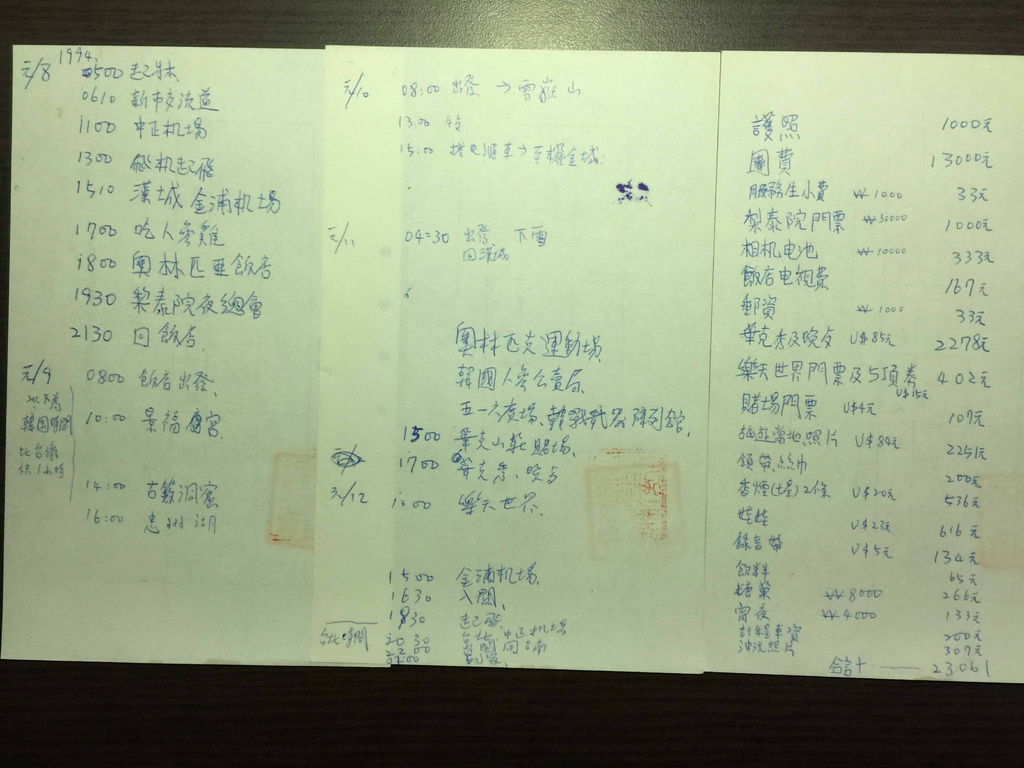 1994.
元/8 0500 起床
0610 新市交流道
1100 中正机場
1300 飛机起飛
1510 漢城 金浦机場
1700 吃人參雞
1800 奧林匹亞飯店
1930 梨泰院夜總會
2130 回飯店
元/9 0800 飯店出發
以下為
韓国時間
比台灣
快1小時
10:00 景福宮
14:00 古藪洞窟
16:00 忠州湖
元/10 08:00 出發 → 雪嶽山
13:00
15:00 搭电纜車→至權金城
元/11 04:30 出發 下雪
回漢城
奧林匹克運動場
韓國人參公賣局
五一六廣場、韓戰武器陳列館
1500 華克山莊賭場
1700 華克秀、晚餐
元/12 樂天世界
1500 金浦机場
1630 入關
1830 起飛
台北時間 20:30 中正机場
22:00 回台南
護照 1000元
團費 13000元
服務生小費 ₩1000 33元
梨泰院門票 ₩30000 1000元
相机电池 ₩10000 333元
飯店电視費 167元
郵資 ₩1000 33元
華克秀及晚餐 U$85元 2278元
樂天世界門票及5項券 U$15元 402元
賭場門票 U$4元 107元
旅遊當地照片 U$84元 2251元
領帶、絲巾 200元
香煙(七星)2條 U$20元 536元
娃娃 U$23元 616元
錄音帶 U$5元 134元
飲料 65元
糖菓 ₩8000 266元
宵夜 ₩4000 133元
計程車資 200元
沖洗照片 307元
合計 —— 23061